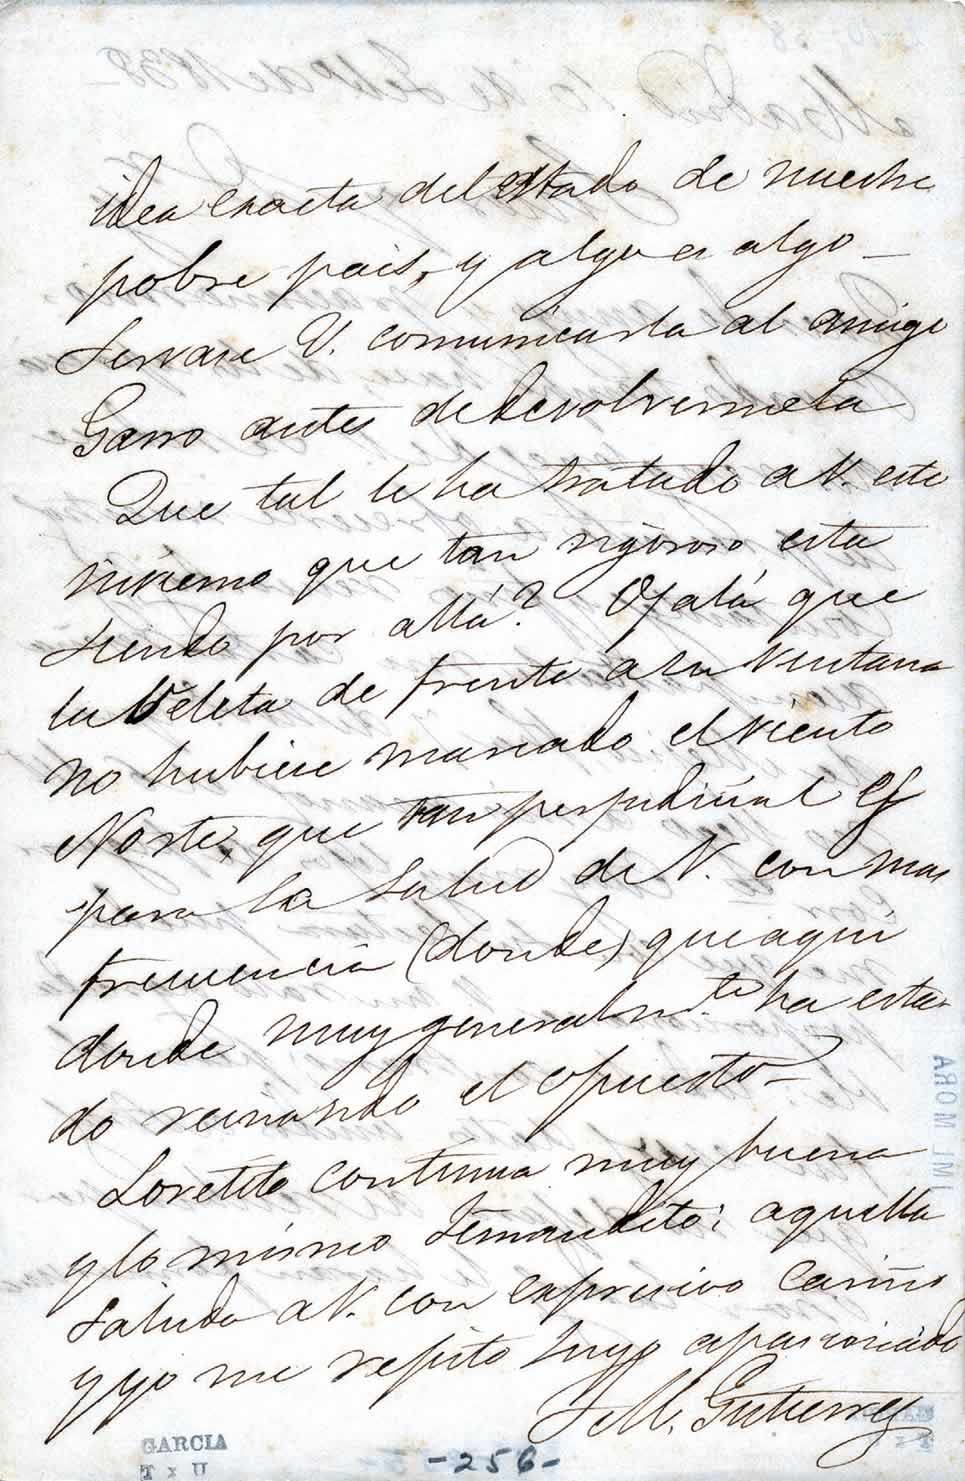 idea exacta del estado de nuestro
pobre pais, y algo es algo —
Servase V. comunicarla al amigo
Garro antes de devolvermela
Que tal le ha tratado a V. este
invierno que tan rigoroso esta
siendo por allá? Ojalá que
la veleta de frente a su ventana
no hubiese marcado el viento
Norte, que tan perjudicial es
para la salud de V. con mas
frecuencia (donde) que aqui
donde muy generalmte. ha esta-
do reinando el opuesto —
Loretito continua muy buena
y lo mismo Fernandito; aquella
saluda a V. con expresivo cariño
y yo me repito suyo apasionado
J. M. Gutierrez
GARCIA
T x U
-256-
IML MORA